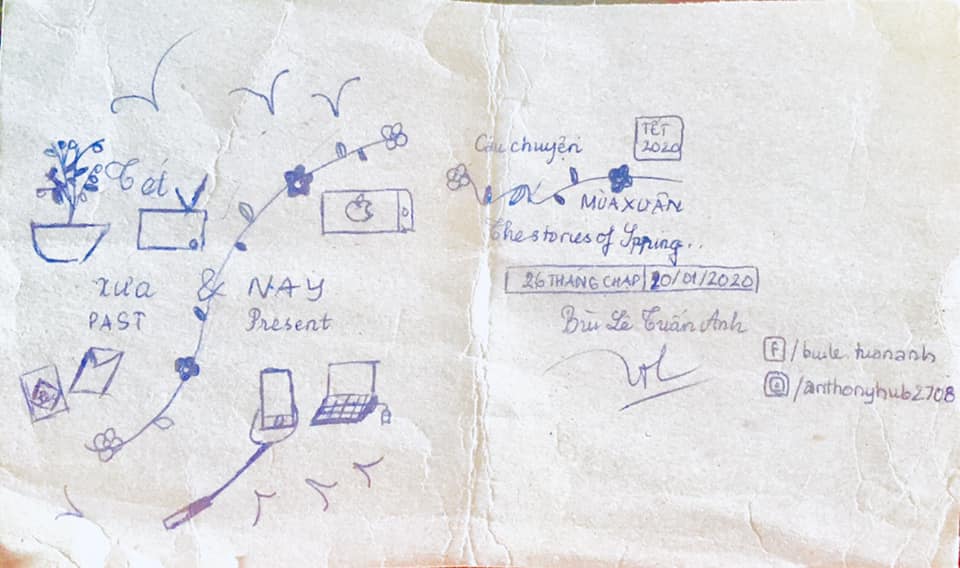 Tết
xưa & NAY
PAST Present
Câu chuyện
TẾT
2020
MÙA XUÂN
The stories of Spping..
26 THÁNG CHẠP 20/01/2020
Bùi Lê Tuấn Anh
f/buile.tuananh
/anthonyhub2708